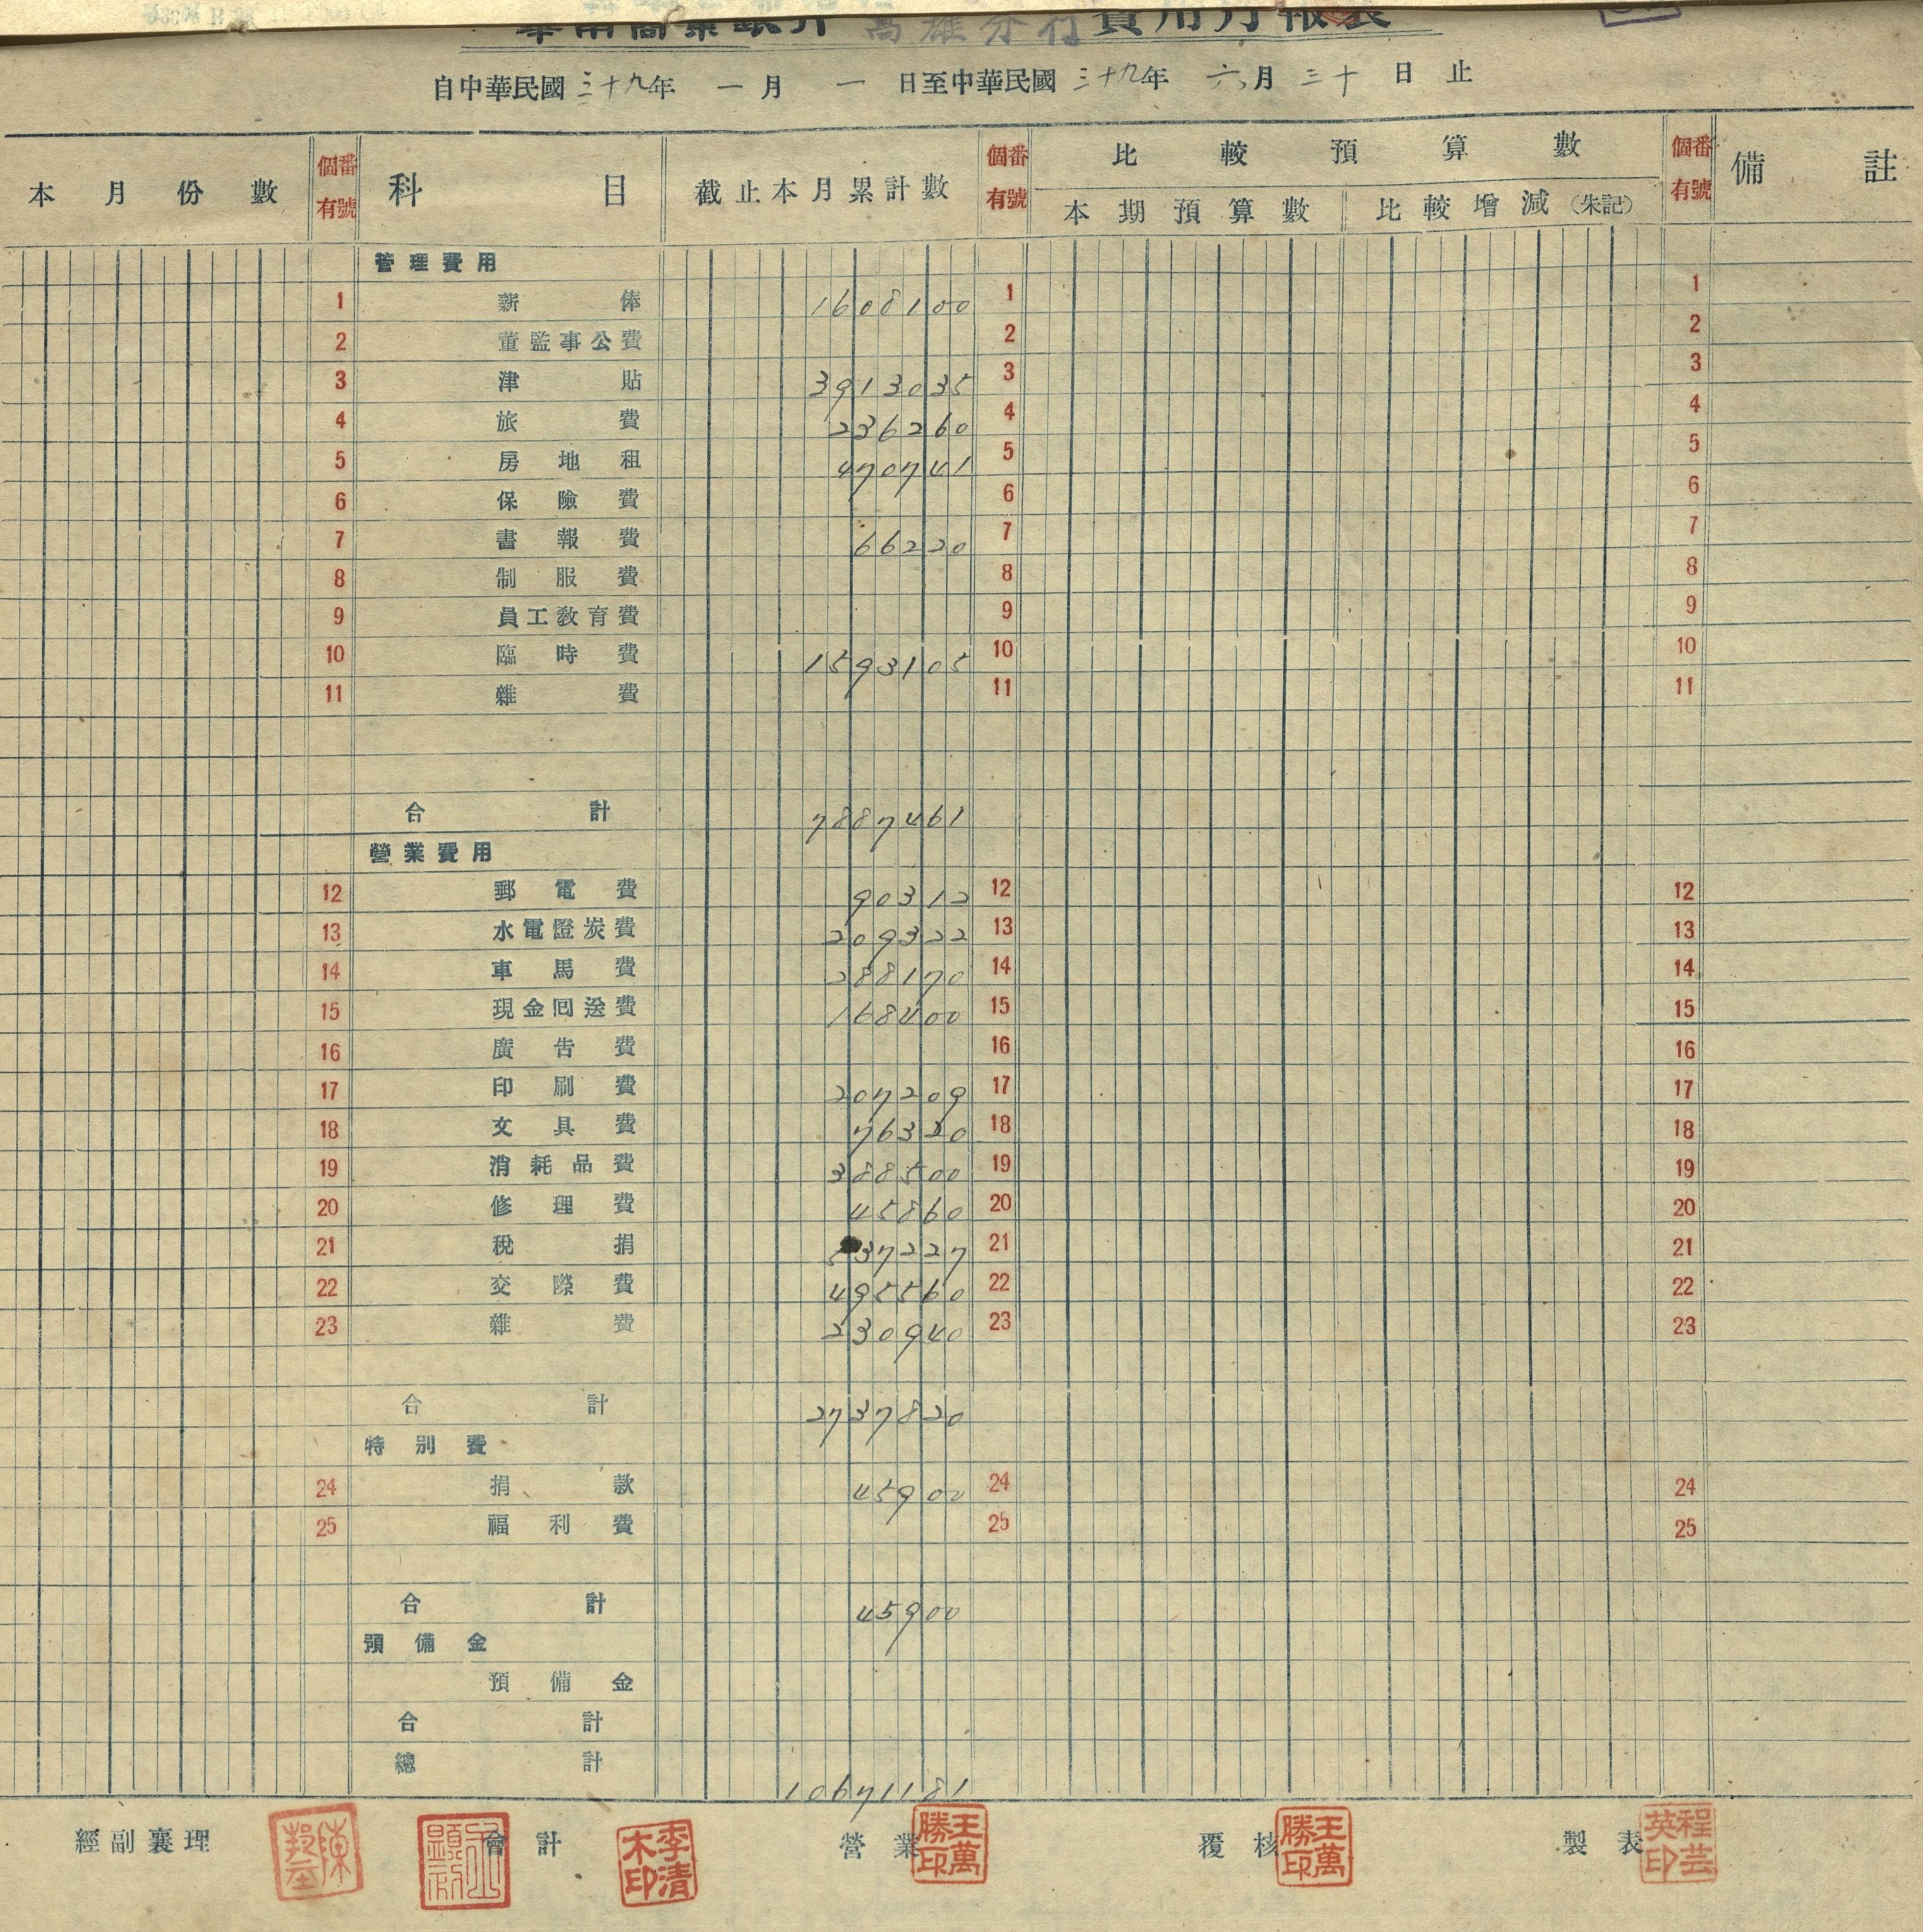 華南商業銀行 高雄分行 費用月報表
自中華民國三十九年 一月 一 日至中華民國三十九年 六月 三十 日 止
本月份數 個有 番號 科目 截止本月累計數 個有 番號 比較預算數 個有 番號 備註
本期預算數 比較增減(朱記)
管理費用
1 薪俸 1608100 1 1
2 董監事公費 2 2
3 津貼 3913035 3 3
4 旅費 236260 4 4
5 房地租 470741 5 5
6 保險費 6 6
7 書報費 66220 7 7
8 制服費 8 8
9 員工教育費 9 9
10 臨時費 1593105 10 10
11 雜費 11 11
合計 7887461
營業費用
12 郵電費 90312 12 12
13 水電燈炭費 209322 13 13
14 車馬費 288170 14 14
15 現金回送費 168400 15 15
16 廣告費 16 16
17 印刷費 207209 17 17
18 文具費 76320 18 18
19 消耗品費 388500 19 19
20 修理費 45860 20 20
21 稅捐 537227 21 21
22 交際費 495560 22 22
23 雜費 230940 23 23
合計 2737820
特別費
24 捐款 45900 24 24
25 福利費 25 25
合計 45900
預備金
預備金
合計
總計 10671181
經副襄理 會計 李清木印 營業 王萬勝印 覆核 王萬勝印 製表 程芸英印